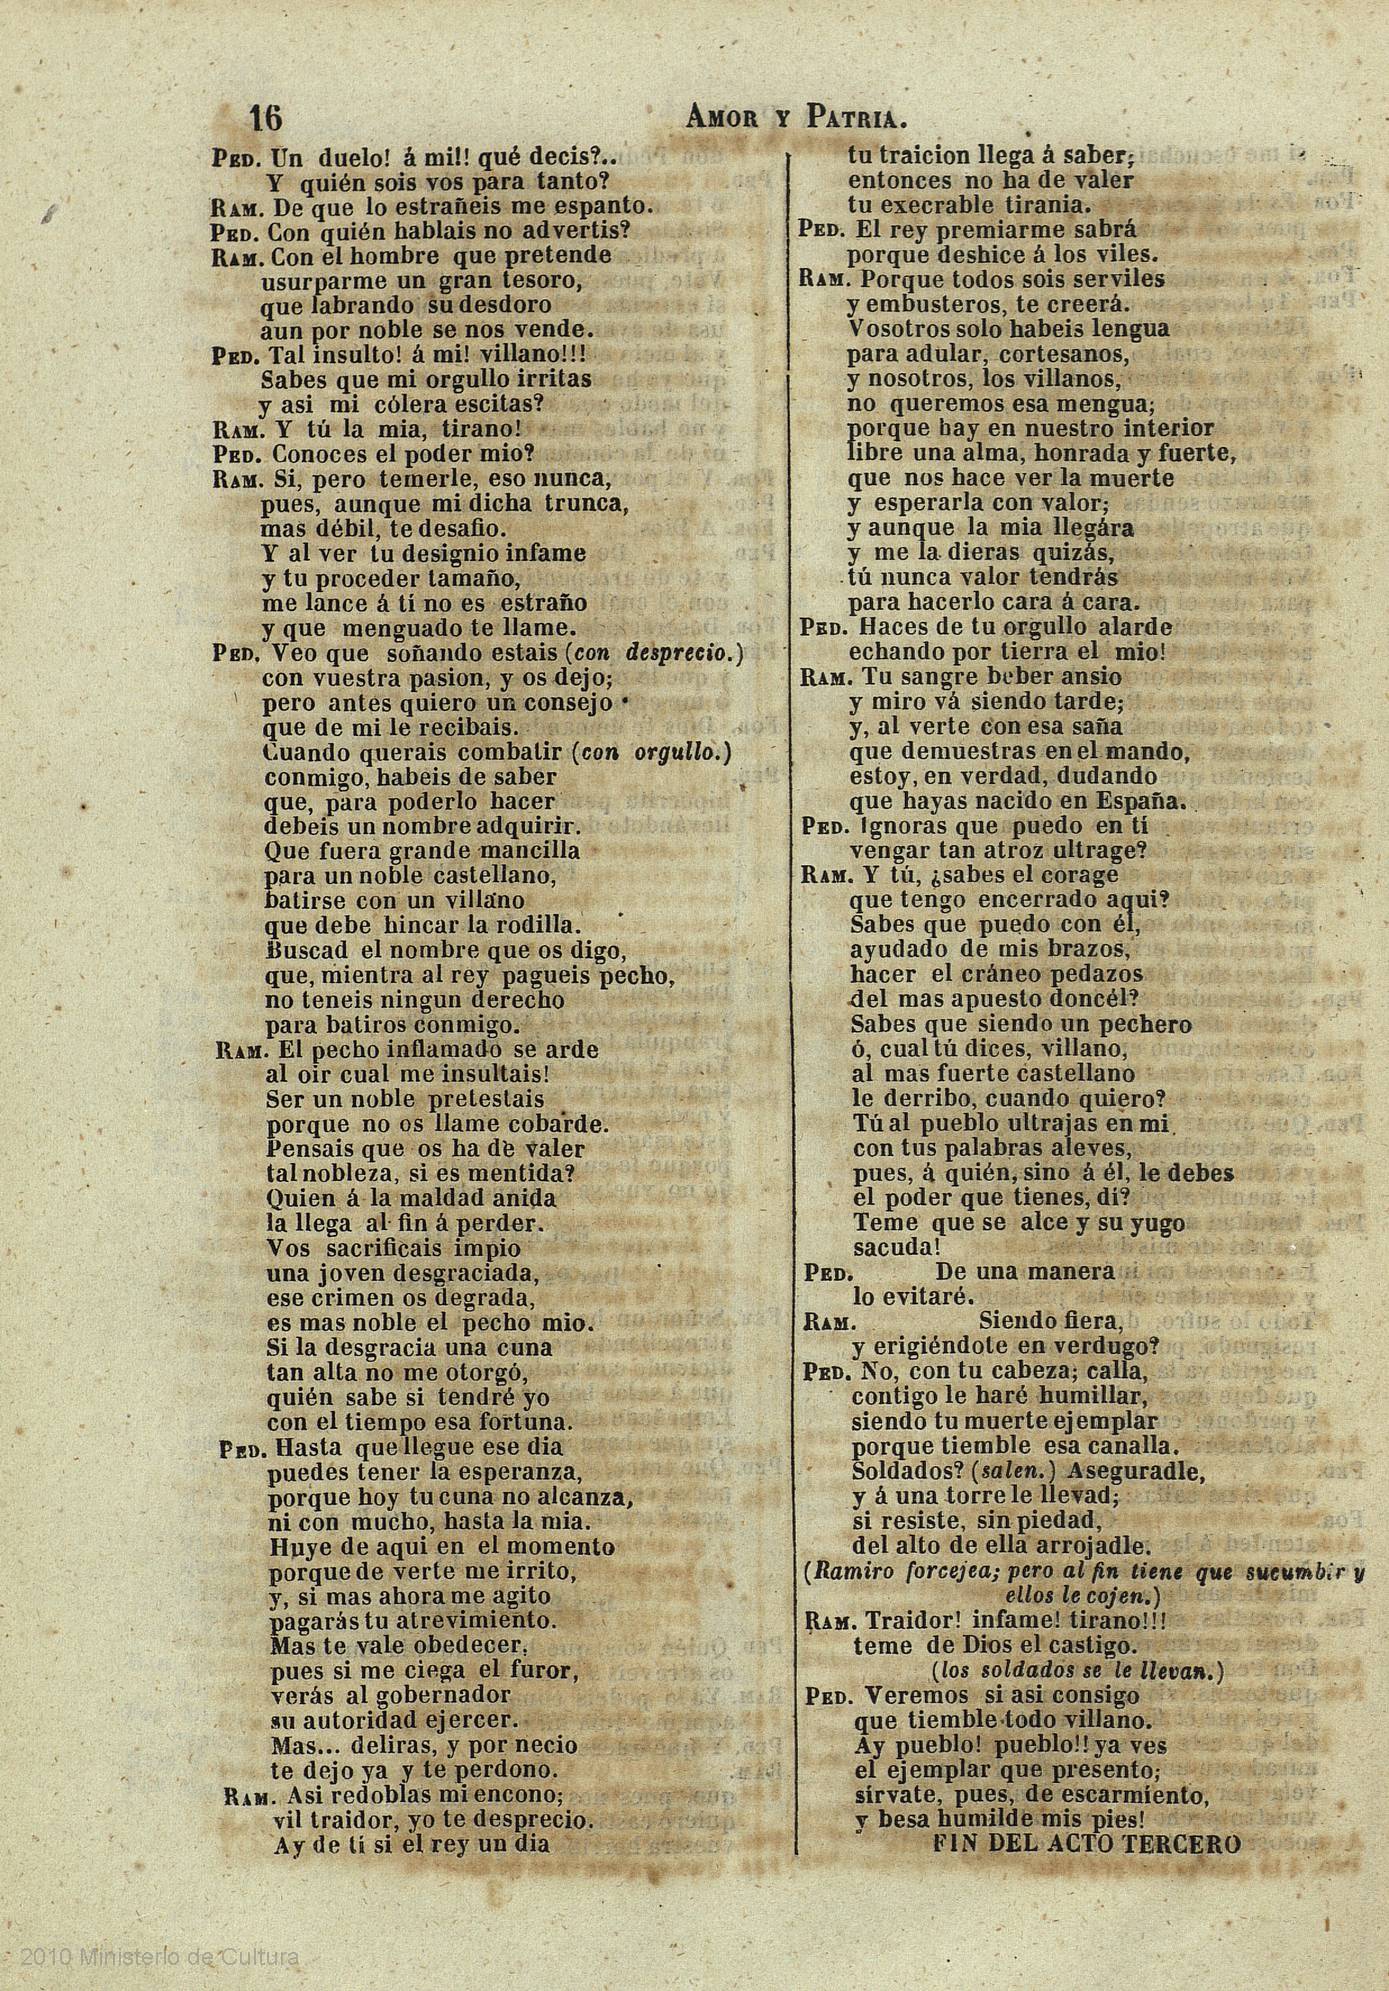 16
AMOR Y PATRIA.
PED. Un duelo! á mi!! qué decis?..
Y quién sois vos para tanto?
RAM. De que lo estrañeis me espanto.
PED. Con quién hablais no advertis?
RAM. Con el hombre que pretende
usurparme un gran tesoro,
que labrando su desdoro
aun por noble se nos vende.
PED. Tal insulto! á mi! villano!!!
Sabes que mi orgullo irritas
y asi mi cólera escitas?
RAM. Y tú la mia, tirano!
PED. Conoces el poder mio?
RAM. Si, pero temerle, eso nunca,
pues, aunque mi dicha trunca,
mas débil, te desafio.
Y al ver tu designio infame
y tu proceder tamaño,
me lance á tí no es estraño
y que menguado te llame.
PED. Veo que soñando estais (con desprecio.)
con vuestra pasion, y os dejo;
pero antes quiero un consejo
que de mi le recibais.
Cuando querais combatir (con orgullo.)
conmigo, habeis de saber
que, para poderlo hacer
debeis un nombre adquirir.
Que fuera grande mancilla
para un noble castellano,
batirse con un villano
que debe hincar la rodilla.
Buscad el nombre que os digo,
que, mientra al rey pagueis pecho,
no teneis ningun derecho
para batiros conmigo.
RAM. El pecho inflamado se arde
al oir cual me insultais!
Ser un noble pretestais
porque no os llame cobarde.
Pensais que os ha de valer
tal nobleza, si es mentida?
Quien á la maldad anida
la llega al fin á perder.
Vos sacrificais impio
una joven desgraciada,
ese crimen os degrada,
es mas noble el pecho mio.
Si la desgracia una cuna
tan alta no me otorgó,
quién sabe si tendré yo
con el tiempo esa fortuna.
PED. Hasta que llegue ese dia
puedes tener la esperanza,
porque hoy tu cuna no alcanza,
ni con mucho, hasta la mia.
Huye de aqui en el momento
porque de verte me irrito,
y, si mas ahora me agito
pagarás tu atrevimiento.
Mas te vale obedecer,
pues si me ciega el furor,
verás al gobernador
su autoridad ejercer.
Mas... deliras, y por necio
te dejo ya y te perdono.
RAM. Asi redoblas mi encono;
vil traidor, yo te desprecio.
Ay de tí si el rey un dia
tu traicion llega á saber;
entonces no ha de valer
tu execrable tirania.
PED. El rey premiarme sabrá
porque deshice á los viles.
RAM. Porque todos sois serviles
y embusteros, te creerá.
Vosotros solo habeis lengua
para adular, cortesanos,
y nosotros, los villanos,
no queremos esa mengua;
porque hay en nuestro interior
libre una alma, honrada y fuerte,
que nos hace ver la muerte
y esperarla con valor;
y aunque la mia llegára
y me la dieras quizás,
tú nunca valor tendrás
para hacerlo cara á cara.
PED. Haces de tu orgullo alarde
echando por tierra el mio!
RAM. Tu sangre beber ansio
y miro vá siendo tarde;
y, al verte con esa saña
que demuestras en el mando,
estoy, en verdad, dudando
que hayas nacido en España.
PED. Ignoras que puedo en tí
vengar tan atroz ultrage?
RAM. Y tú, ¿sabes el corage
que tengo encerrado aqui?
Sabes que puedo con él,
ayudado de mis brazos,
hacer el cráneo pedazos
del mas apuesto doncél?
Sabes que siendo un pechero
ó, cual tú dices, villano,
al mas fuerte castellano
le derribo, cuando quiero?
Tú al pueblo ultrajas en mi
con tus palabras aleves,
pues, á quién, sino á él, le debes
el poder que tienes, di?
Teme que se alce y su yugo
sacuda!
PED. De una manera
lo evitaré.
RAM. Siendo fiera,
y erigiéndote en verdugo?
PED. No, con tu cabeza; calla,
contigo le haré humillar,
siendo tu muerte ejemplar
porque tiemble esa canalla.
Soldados? (salen.) Aseguradle,
y á una torre le llevad;
si resiste, sin piedad,
del alto de ella arrojadle.
(Ramiro forcejea; pero al fin tiene que sucumbir y
ellos le cojen.)
RAM. Traidor! infame! tirano!!!
teme de Dios el castigo.
(los soldados se le llevan.)
PED. Veremos si asi consigo
que tiemble todo villano.
Ay pueblo! pueblo!! ya ves
el ejemplar que presento;
sírvate, pues, de escarmiento,
y besa humilde mis pies!
FIN DEL ACTO TERCERO
2010 Ministerio de Cultura